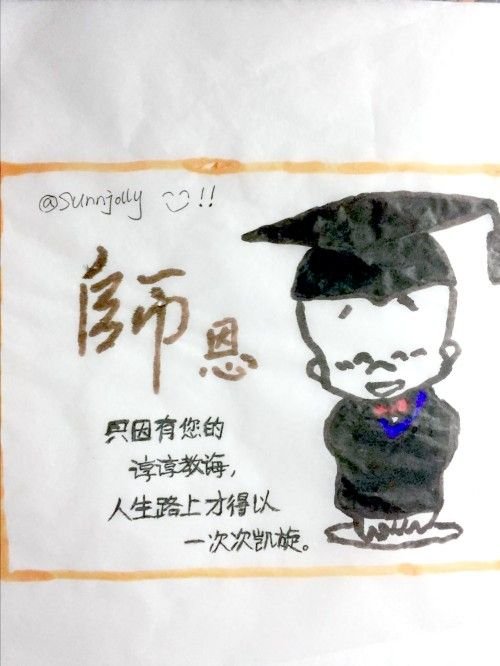 @Sunnjolly !!
師恩
只因有您的
谆谆教海，
人生路上才得以
一次次凯旋。